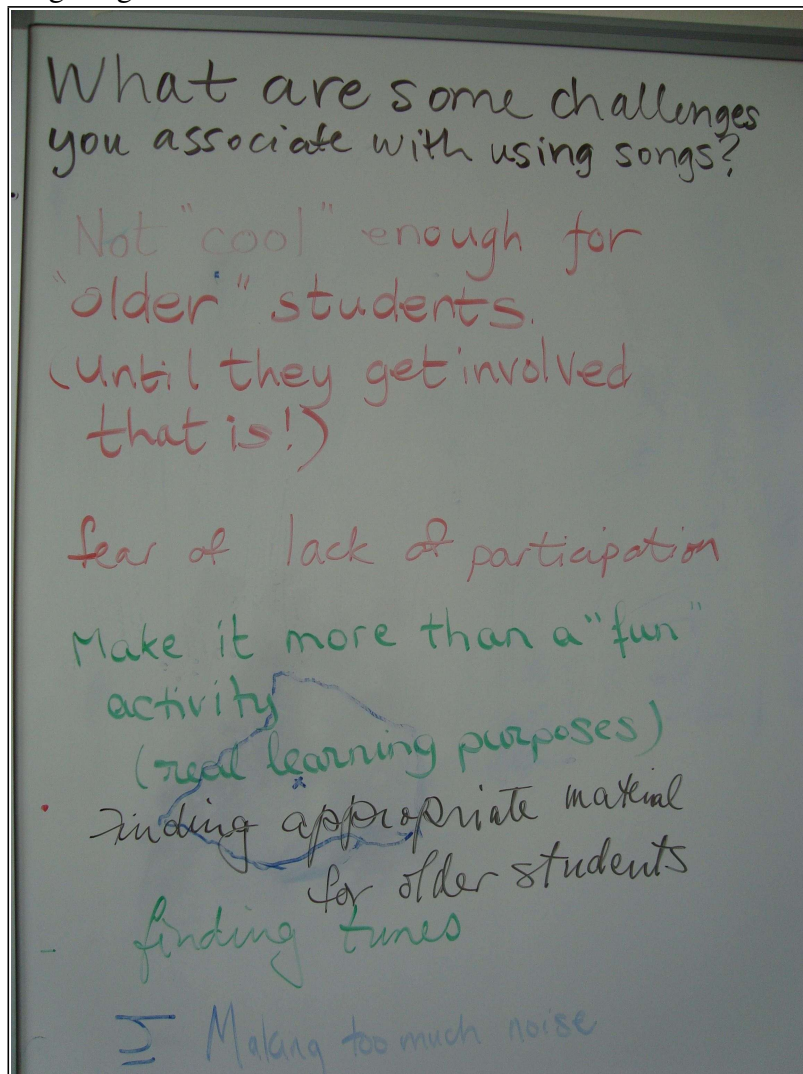 What are some challenges
you associate with using songs?
Not "cool" enough for
"older" students.
(until they get involved
that is!)
fear of lack of participation
Make it more than a "fun"
activity
(real learning purposes)
Finding appropriate material
for older students
finding tunes
Making too much noise